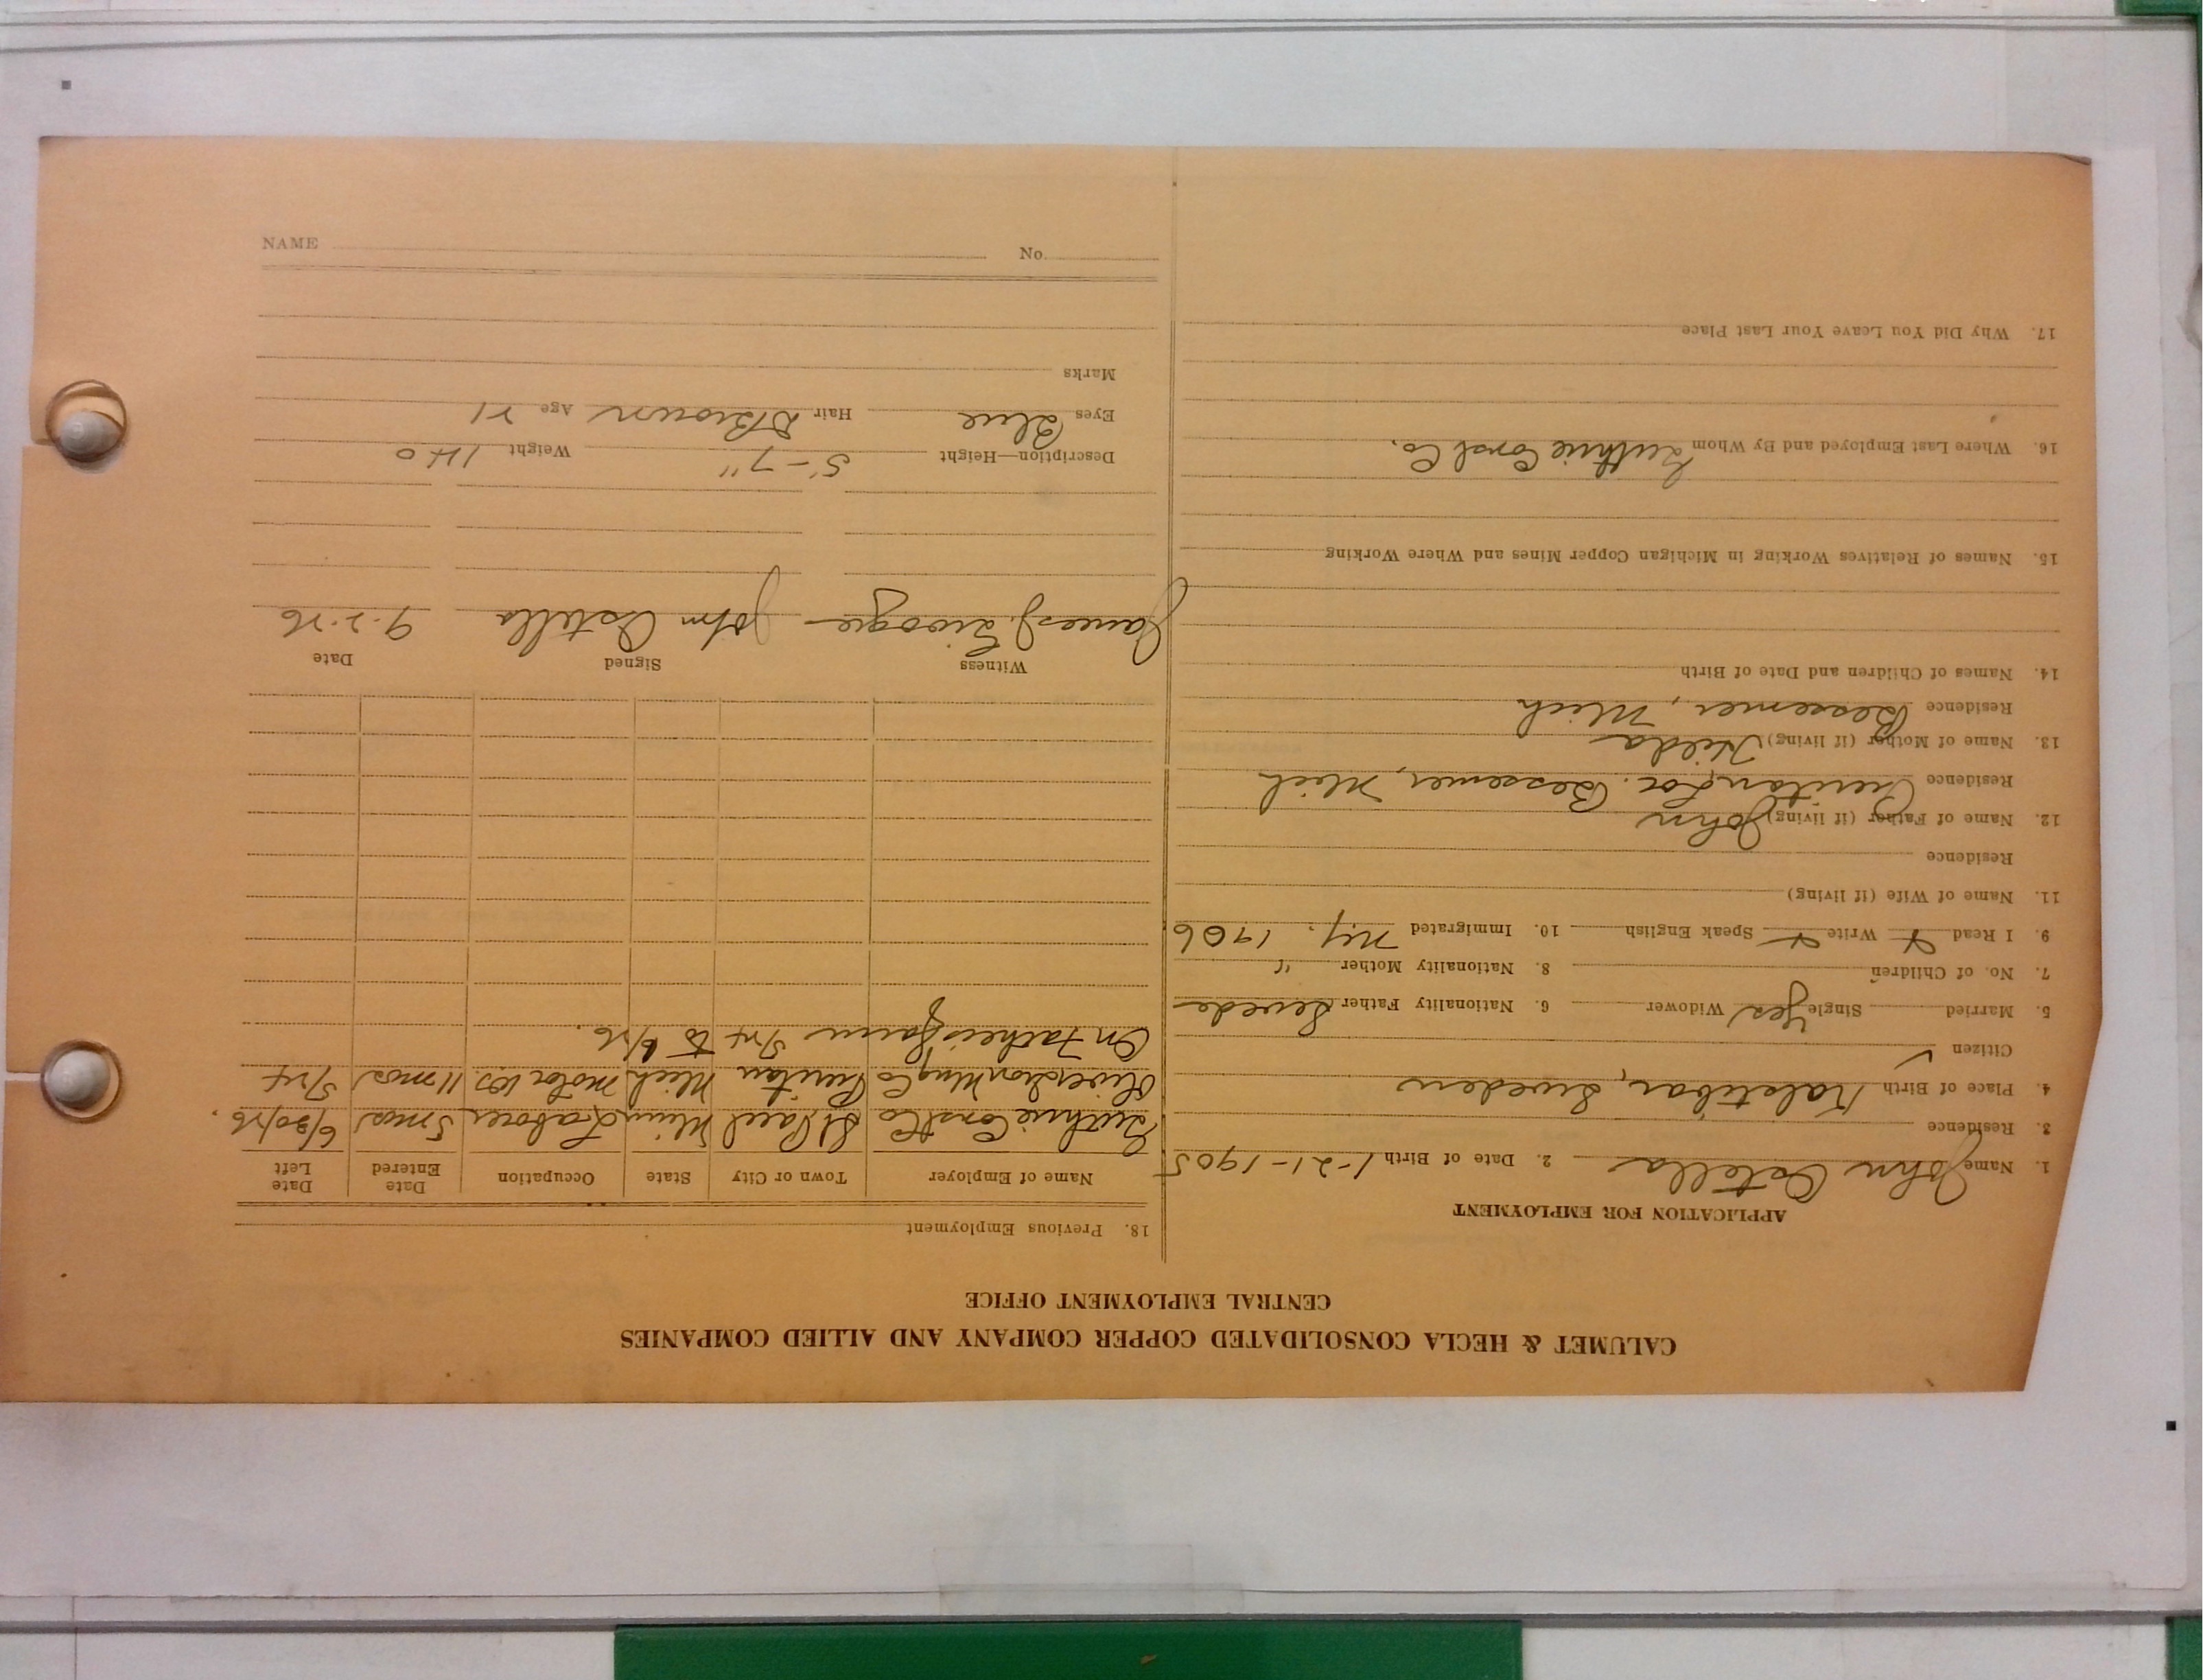 CALUMET & HECLA CONSOLIDATED COPPER COMPANY AND ALLIED COMPANIES
CENTRAL EMPLOYMENT OFFICE
APPLICATION FOR EMPLOYMENT
1. Name John Ostella 2. Date of Birth 1-21-1905
3. Residence
4. Place of Birth Sweden
Citizen ✓
5. Married Single Yes Widower 6. Nationality Father Swede
7. No. of Children 8. Nationality Mother "
9. I Read Write Speak English 10. Immigrated N.Y. 1906
11. Name of Wife (if living)
Residence
12. Name of Father (if living) John
Residence Puritan Loc. Bessemer, Mich
13. Name of Mother (if living) Hilda
Residence Bessemer, Mich
14. Names of Children and Date of Birth
15. Names of Relatives Working in Michigan Copper Mines and Where Working
16. Where Last Employed and By Whom Guthrie Const Co.
17. Why Did You Leave Your Last Place
18. Previous Employment
Name of Employer Town or City State Occupation Date Entered Date Left
Guthrie Const Co St Paul Minn Laborer 5 mos 6/30/26.
Oliver Iron Mng Co Puritan Mich motor 11 mos 5/24
On Fathers farm 5/24 to 6/26.
Witness Signed Date
James J. John Ostella 9-2-26
Description—Height 5-7" Weight 140
Eyes Blue Hair D Brown Age 21
Marks
NAME No.